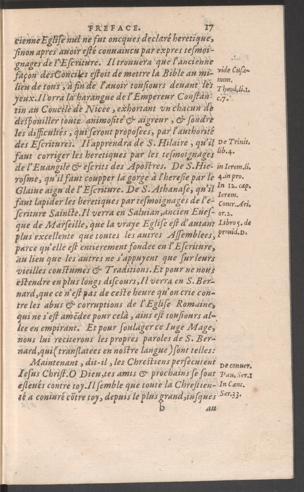 PREFACE. 17
cienne Eglise nul ne fut oncques declaré heretique,
sinon apres auoir esté conuaincu par expres tesmoi-
gnages de l'Escriture. Il trouuera que l'ancienne
façon des Conciles estoit de mettre la Bible au mi-
lieu de tous, à fin de l'auoir tousiours deuant les
yeux. Il orra la harangue de l'Empereur Constan-
tin au Concile de Nicee, exhortant vn chacun de
despouiller toute animosité & aigreur, & soudre
les difficultés, qui seront proposees, par l'authorité
des Escritures. Il apprendra de S. Hilaire, qu'il
faut corriger les heretiques par les tesmoignages
de l'Euangile & escrits des Apostres. De S. Hie-
rosme, qu'il faut coupper la gorge à l'heresie par le
Glaiue aigu de l'Escriture. De S. Athanase, qu'il
faut lapider les heretiques par tesmoignages de l'e-
scriture Saincte. Il verra en Saluian, ancien Eues-
que de Marseille, que la vraye Eglise est d'autant
plus excellente que toutes les autres Assemblees,
parce qu'elle est entierement fondee en l'Escriture,
au lieu que les autres ne s'appuyent que sur leurs
vieilles coustumes & Traditions. Et pour ne nous
estendre en plus longs discours, Il verra en S. Ber-
nard, que ce n'est pas de ceste heure qu'on crie con-
tre les abus & corruptions de l'Eglise Romaine,
qui ne s'est amédee pour celà, ains est tousiours al-
lee en empirant. Et pour soulager ce Iuge Mage,
nous lui reciterons les propres paroles de S. Ber-
nard, qui (translatees en nostre langue) sont telles:
Maintenant, dit-il, les Chrestiens persecutent
Iesus Christ. O Dieu, tes amis & prochains se sont
esleués contre toy. Il semble que toute la Chrestien-
té a coniuré cōtre toy, depuis le plus grand, iusques
b au
vide Cusa-
num.
Theod. li.1.
c.7.
De Trinit.
lib.4.
in Ierem. li.
4. in pro.
In 12. cap.
Ierem.
Conc. Ari-
or.2.
Libro 5. de
prouid. D.
De conuer.
Pau. Ser.1
In Cant.
Ser.33.